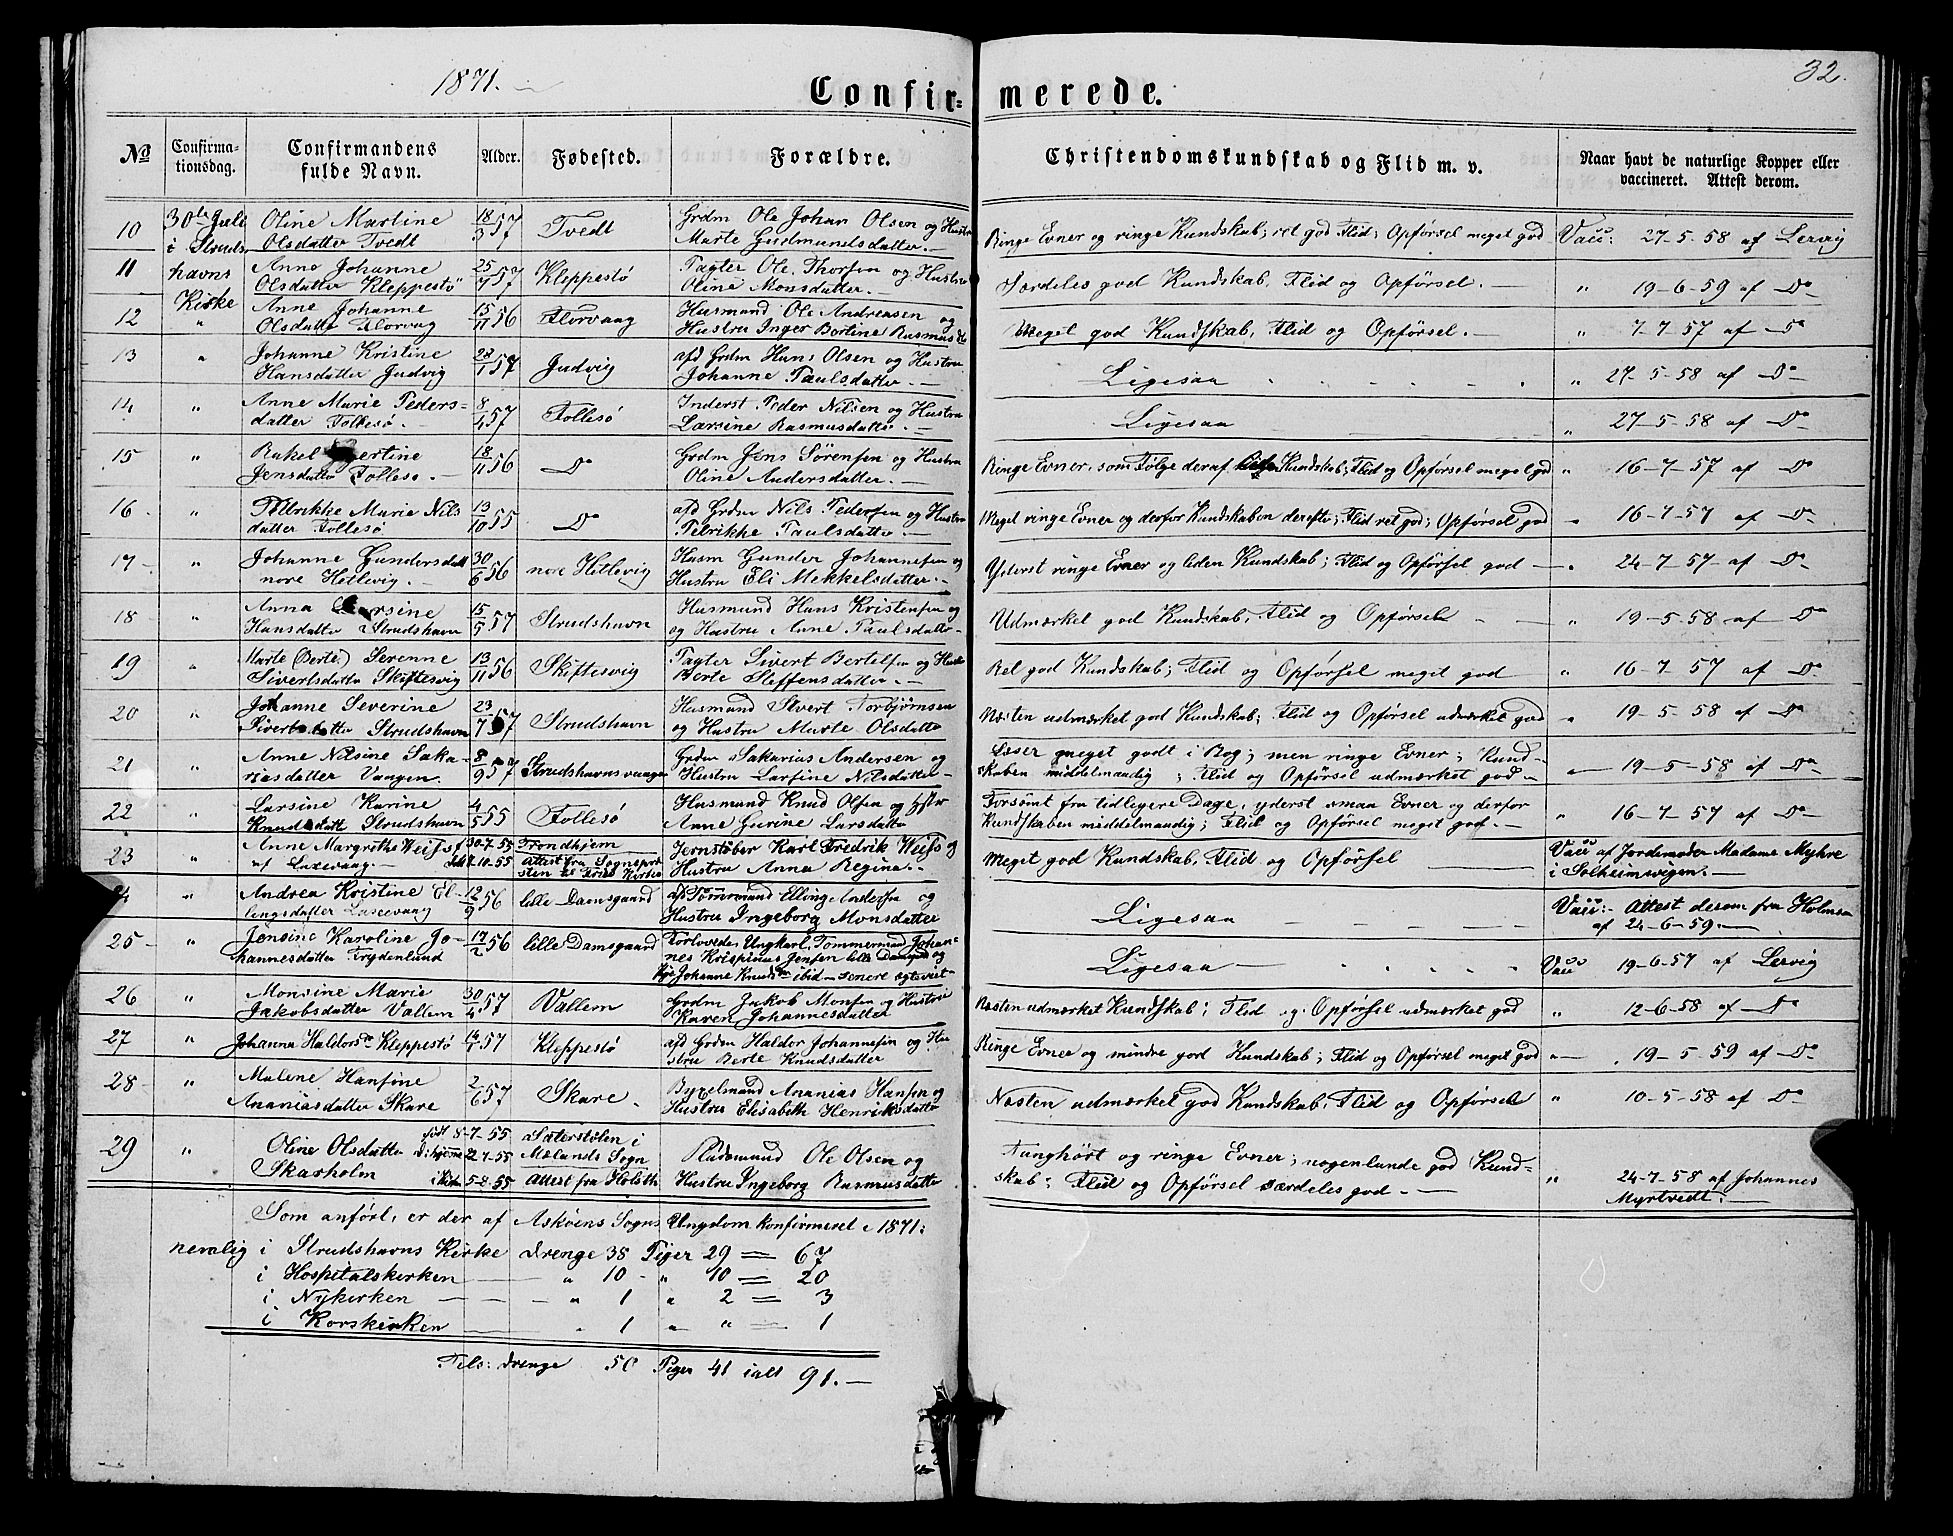 1871.
32.
Confir- merede.
No
Confirma-
tionsdag.
Confirmandens
fulde Navn.
Alder.
Fødested.
Forældre.
Christendomskundskab og Flid m. v.
Naar havt de naturlige Kopper eller
vaccineret. Attest derom.
10 30te Juli Oline Martine 18/3 57 Tvedt Grdm Ole Johan Olsen og Hustru
i Struds Olsdatter Tvedt Marte Gudmundsdatter.
Ringe Evner og ringe Kundskab; ret god Flid; Opførsel meget god Vacc: 27-5-58 af Lervig
11 havns Anne Johanne 25/ 57 Kleppestö Ole Thorsen og Hustru
Olsdatter Kleppestö Oline Monsdatter.
Særdeles god Kundskab, Flid og Opførsel. " 19-6-59 af Do
12 Kirke Anne Johanne 15/11 56 Florvaag Husmand Ole Andreasen og
" Olsdatter Florvag Hustru Inger Bertine Rasmusd
Meget god Kundskab, Flid og Opførsel. " 7-7-57 af Do
13 " Johanne Kristine 28/1 57 Judvig afd Grdm Hans Olsen og Hustru
Hansdatter Judvig Johanne Paulsdatter.
Ligesaa " 27-5-58 af Do
14 " Anne Marie Peders- 8/4 57 Follesö Inderst Peder Nilsen og Hustru
datter Follesö. Larsine Rasmusdatter.
Ligesaa " 27-5-58 af Do
15 " Rakel 18/11 56 Do Grdm Jens Sörensen og Hustru
Jensdatter Follesø. Oline Andersdatter.
Ringe Evner, som Følge deraf Kundskab; Flid og Opførsel meget god " 16-7-57 af Do
16 " Petrikke Marie Nils 13/10 55 Do afd Grdm Nils Pedersen og Hustru
datter Follesö Petrikke Paulsdatter
Meget ringe Evner og derfor Kundskaben derefter; Flid ret god; Opførsel god " 16-7-57 af Do
17 " Johanne Gundersdatt 30/6 56 nore Hetlevig Husm Gunder Johannesen og
nore Hetlevig. Hustru Eli Mekkelsdatter.
Yderst ringe Evner og liden Kundskab; Flid og Opførsel god " 24-7-57 af Do
18 " Anna Larsine 15/5 57 Strudshavn Husmand Hans Kristensen og
Hansdatter Strudshavn og Hustru Anne Paulsdatter
Udmærket god Kundskab, Flid og Opførsel " 19-5-58 af Do
19 " Marte (Berte) Serenne 13/11 56 Skiftesvig Sivert Bertelsen og Hustru
Sivertsdatter Skiftesvig Berte Steffensdatter.
Ret god Kundskab; Flid og Opførsel meget god " 16-7-57 af Do
20 " Johanne Severine 23/7 57 Strudshavn Husmand Sivert Torbjørnsen
Sivertsdatter Strudshavn og Hustru Marte Olsdatter
Næsten udmærket god Kundskab; Flid og Opførsel udmærket god " 19-5-58 af Do
21 " Anne Nilsine Saka- 8/9 57 Strudshavnsvaagen Grdm Sakarias Andersen og
riasdatter Vaagen. Hustru Larsine Nilsdatter
Læser meget godt i Bog; men ringe Evner; Kund-
skaben middelmaadig; Flid og Opførsel udmærket god 19-5-58 af Do
22 " Larsine Karine 4/5 55 Follesö Husmand Knud Olsen og Hstr
Knudsdatt Strudshavn Anne Gurine Larsdatter
Forsömt fra tidligere Dage, yderst smaa Evner og derfor
Kundskaben middelmaadig; Flid og Opførsel meget god. " 16-7-57 af Do
23 " Anne Margrethe Weiss f 30-7-55 Trondhjem Jernstøber Karl Fredrik Weiss og
af Laxevaag 7-10-55 Attest fra Sognepre
sten Hustru Anna Regina.
Meget god Kundskab, Flid og Opførsel Vacc af Jordemoder Madame Myhre
i Solheimsvigen.
24 " Andrea Kristine El- 12/9 56 lille Damsgaard afd Tömmermand Elling og
lingsdatter Laxevaag Hustru Ingeborg Monsdatter
Ligesaa Vacc: Attest derom fra Holmsen
af 24-6-59.
25 " Jensine Karoline Jo- 17/2 56 lille Damsgaard Forlovede: Ungkarl, Tømmermand Johan-
hannesdatter Frydenlund nes Krispinus Jensen lille Damsgd og
Pige Johanne Knudsdtr ibid - senere egteviet
Ligesaa Vacc 19-6-57 af Lervig
26 " Monsine Marie 30/4 57 Vallem Grdm Jakob Monsen og Hustru
Jakobsdatter Vallem Karen Johannesdatter
Næsten udmærket Kundskab; Flid og Opførsel udmærket god " 12-6-58 af Do
27 " Johanna Haldorsdr Kleppestö 57 Kleppestö afd Grdm Haldor Johannesen og Hu
stru Berte Knudsdatter
Ringe Evner og mindre god Kundskab; Flid og Opførsel meget god " 19-5-59 af Do
28 " Malene Hansine 2/6 57 Skare Ananias Hansen og
Ananiasdatter Skare Hustru Elisabeth Henriksdatter
Næsten udmærket god Kundskab, Flid og Opførsel " 10-5-58 af Do
29 " Oline Olsdatter født 8-7-55 Sæterstølen i Pladsmand Ole Olsen og
Skarholm Dhjemme 22-7-55 Mælands Sogn Hustru Ingeborg Rasmusdatter
i Kirke 5-8-55 Attest fra
Tunghørt og ringe Evner; nogenlunde god Kund-
skab; Flid og Opførsel særdeles god. " 24-7-58 af Johannes
Myrtvedt.
Som anført, er der af Askøens Sogns Ungdom konfirmeret i 1871:
nemlig i Strudshavns Kirke Drenge 38 Piger 29 = 67
i Hospitalskirken " 10 " 10 = 20
i Nykirken " 1 " 2 = 3
i Korskirken " 1 " " = 1
Tils: Drenge 50 Piger 41 ialt 91.